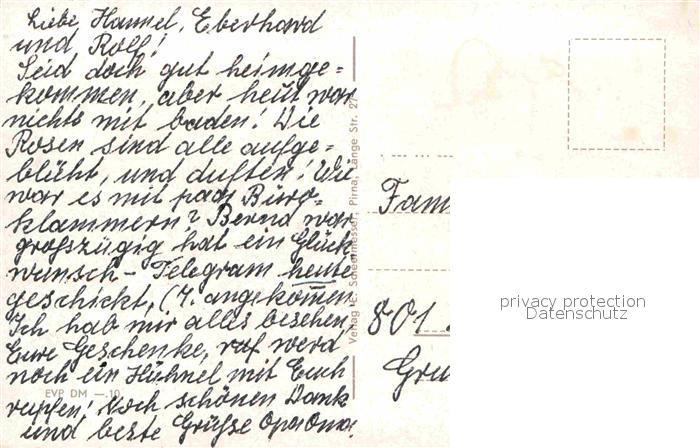 Liebe Hannel, Eberhard
und Rolf!
Seid doch gut heimge=
kommen, aber heut war
nichts mit baden! Die
Rosen sind alle aufge=
blüht, und duften! Wie
war es mit paar Büro-
klammern? Bernd war
großzügig, hat ein Glück
wunsch - Telegram heute
geschickt, (4. angekommen
Ich hab mir alles besehen,
Eure Geschenke, werd
noch ein Hühnel mit Euch
rupfen! Noch schönen Dank
und beste Grüße Opa Oma.
EVP DM —.10
Verlag E. Pirna, Lange Str. 27
Fam
801
Gru
privacy protection
Datenschutz